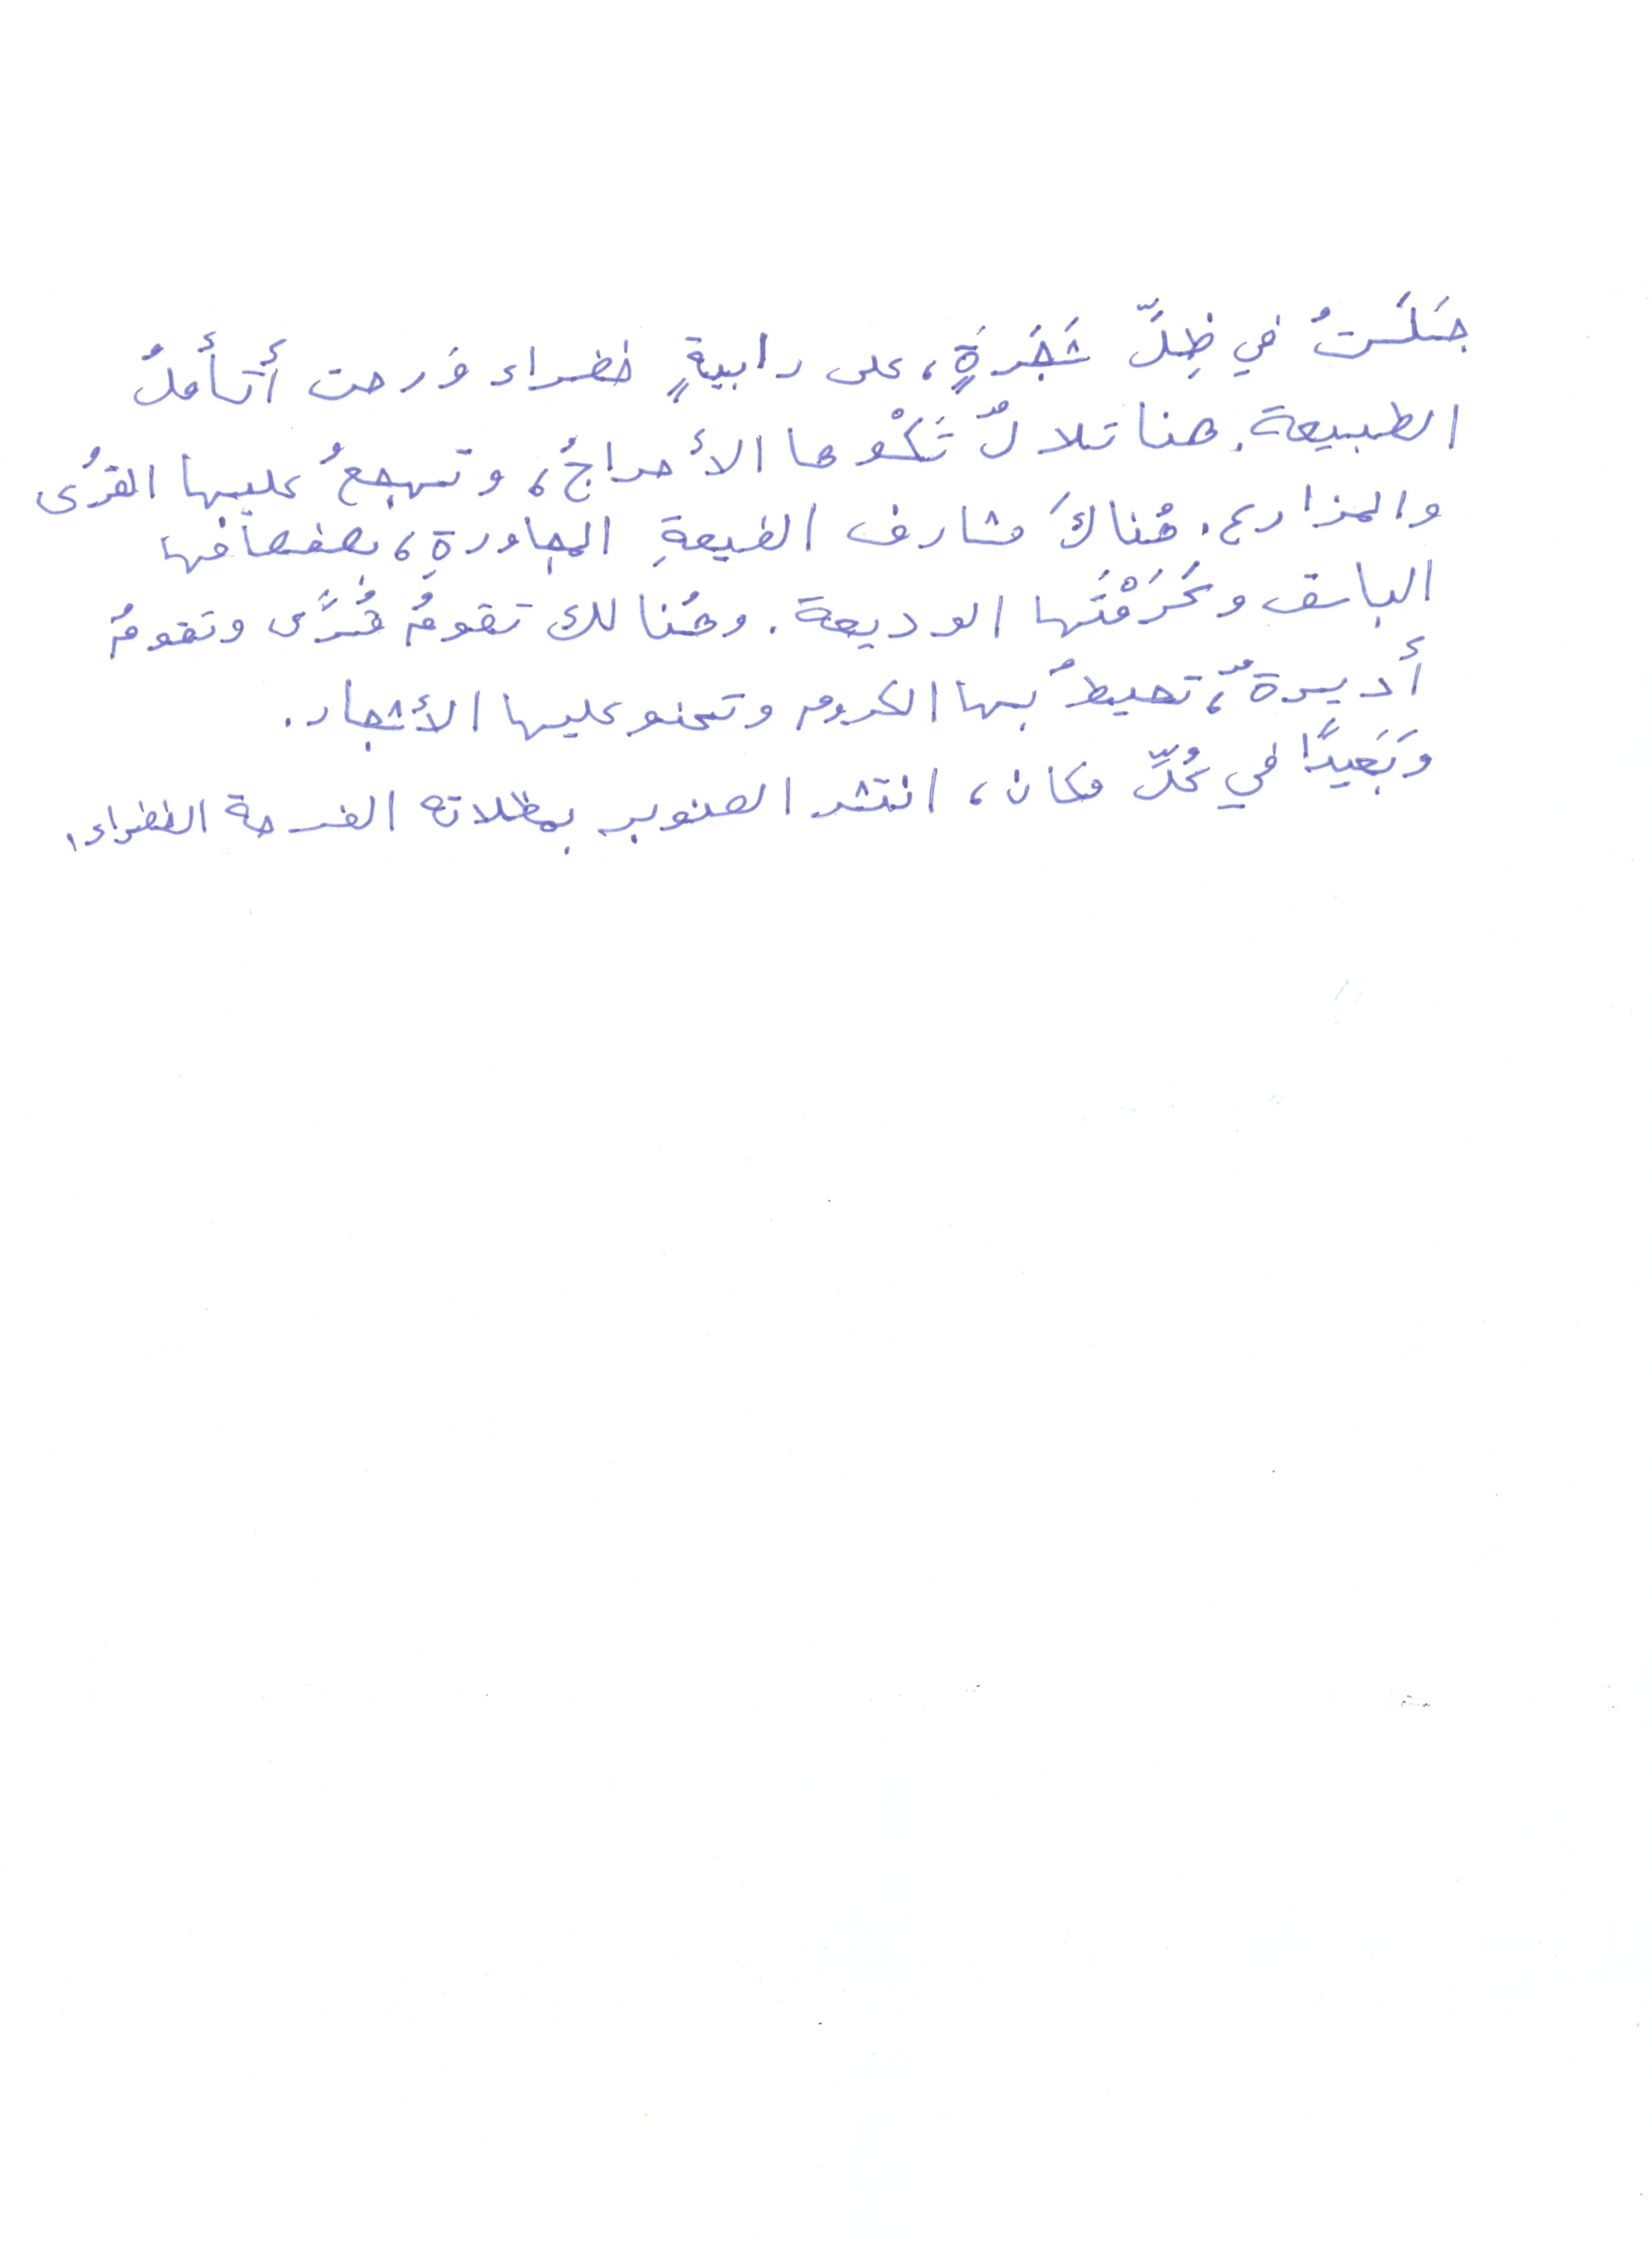 جَلَسْتُ في ظِلِّ شَجَرَةٍ، على رابيةٍ خضراء وَرحت أتأملُ
الطبيعة. هنا تلالٌ تَكْسوها الأحراجُ، وتهجعُ عليها القرُى
والمزارع. هُناكَ مشارف الضيعةِ المجاورةِ، بصفصافها
الباسق وكَرَمْتَها الوديعة. وهُنالك تقومُ قُرًى وتقومُ
أديرةٌ، تحيطُ بها الكروم وتحنو عليها الأشجار.
وَبَعيدًا في كُلِّ مكان، انتشر الصنوبر بمظلاته الفرحة الخضراء.